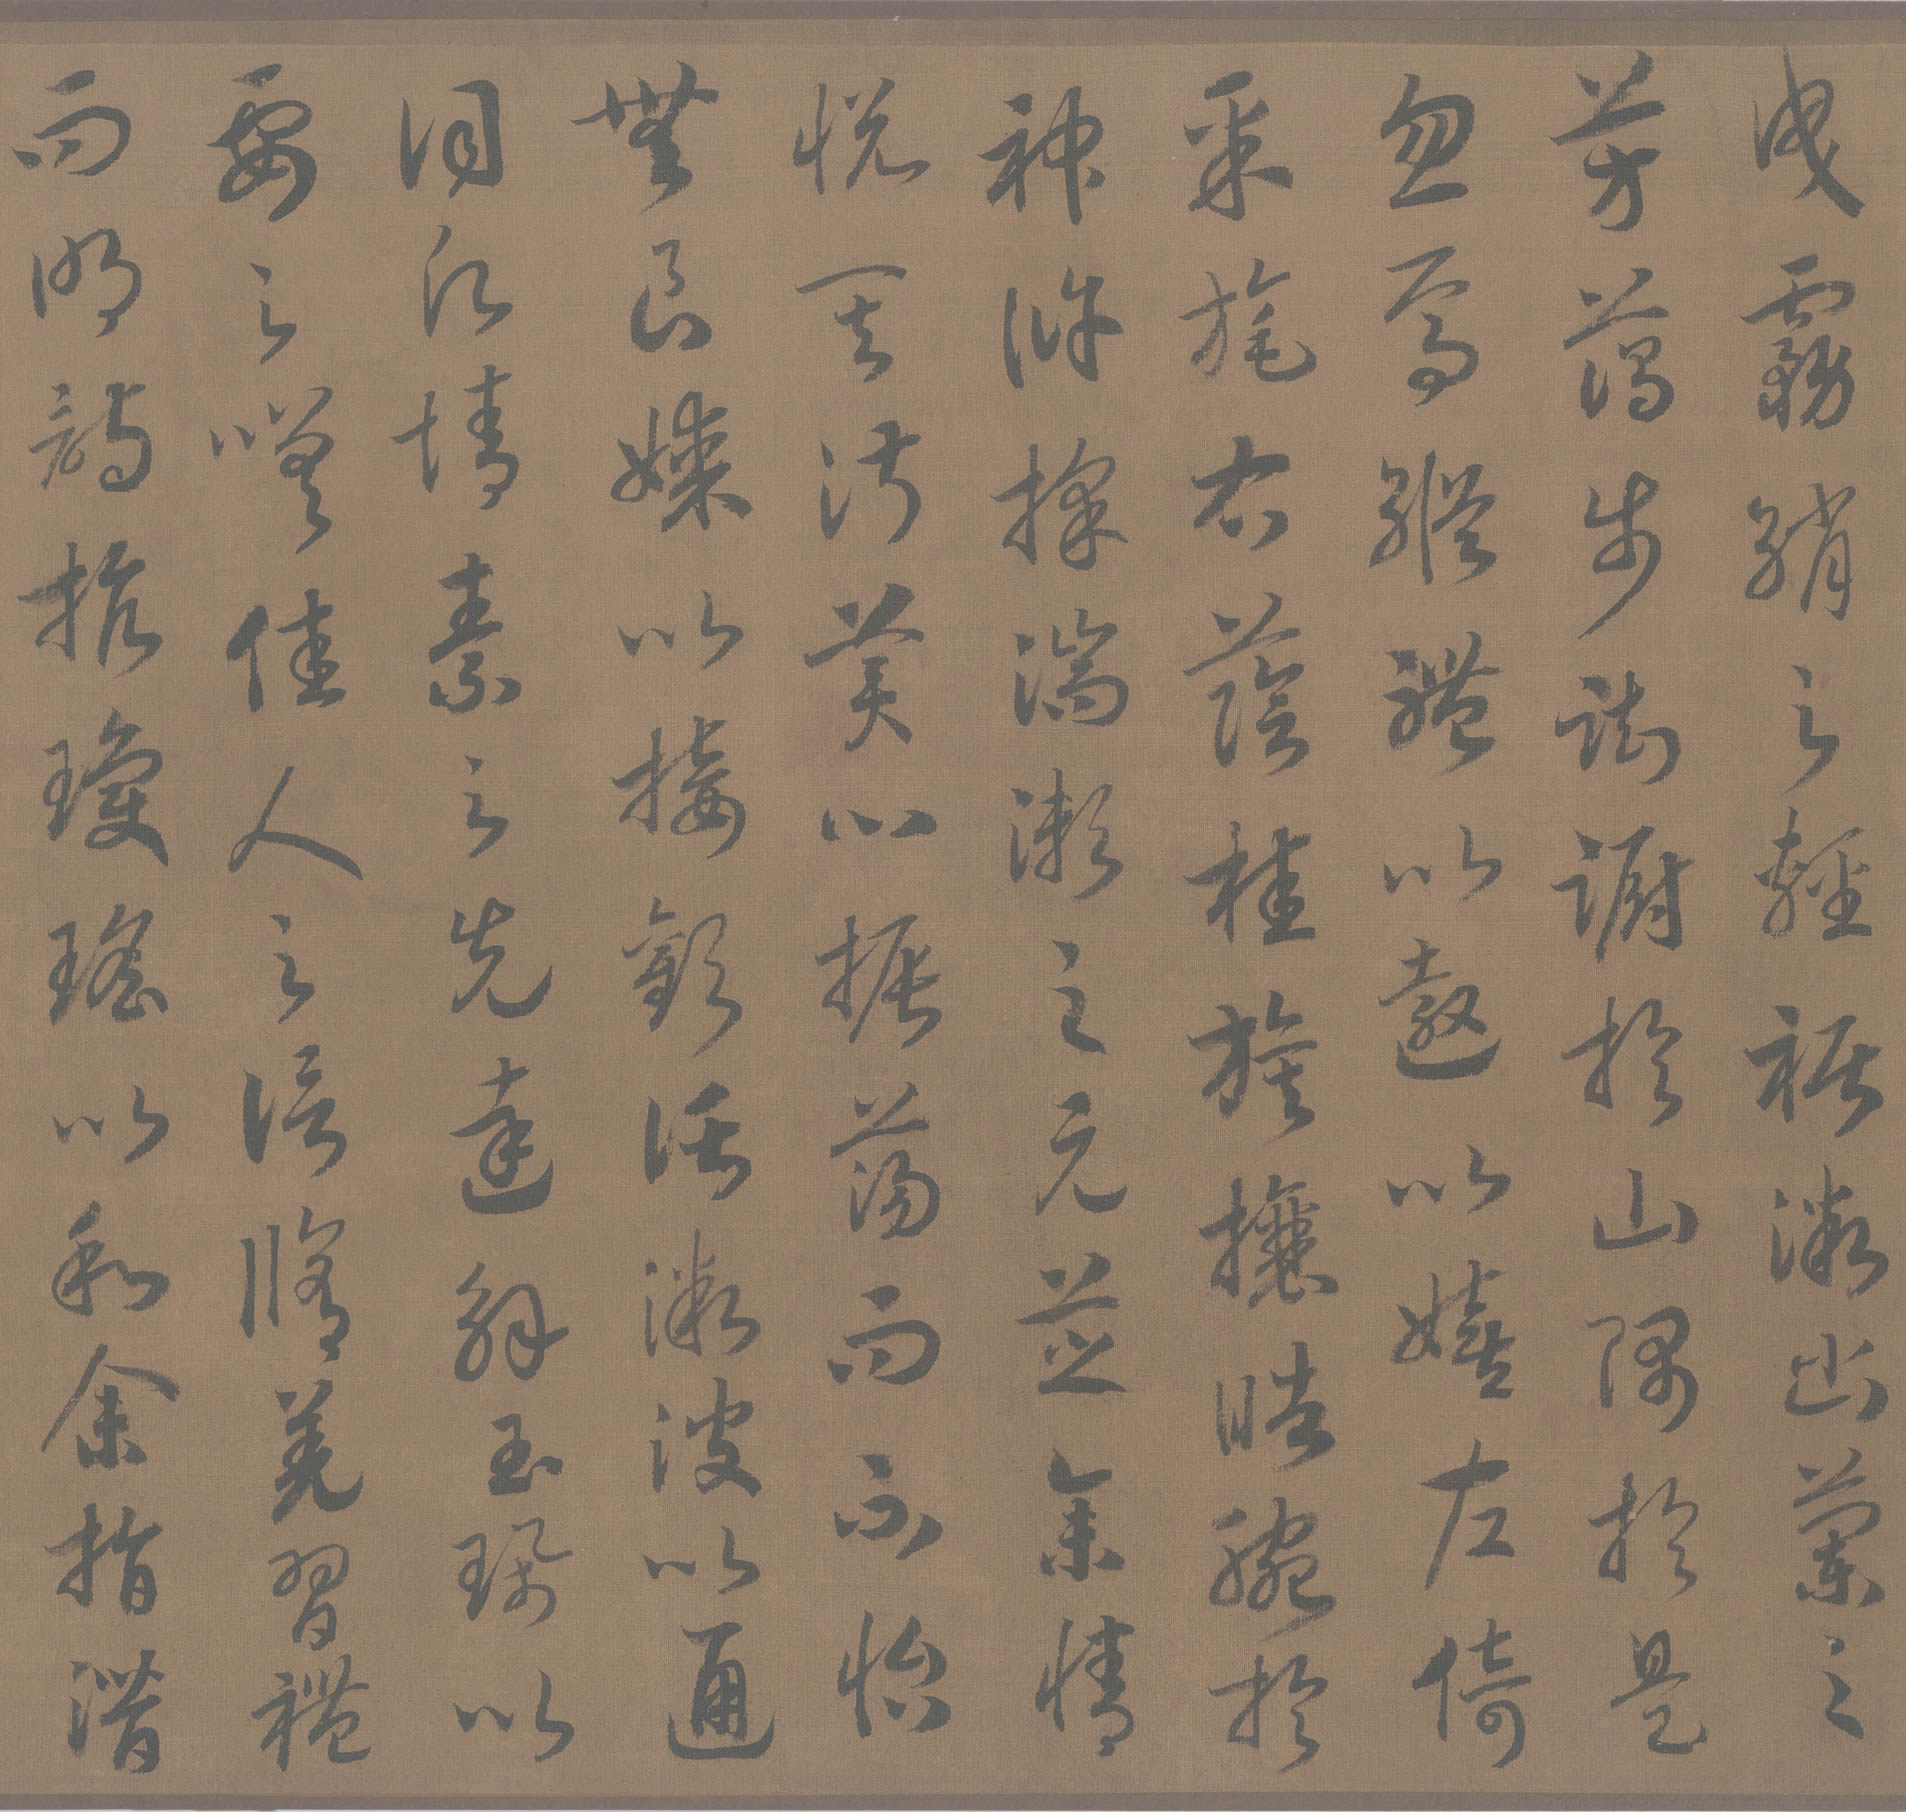 曳霧綃之輕裾微幽蘭之
芳藹步踟躕於山隅於是
忽焉縱體以遨以嬉左倚
采旄右蔭桂旗攘皓腕於
神滸採湍瀨之元芝余情
悅其淑美心振蕩而不怡
無良媒以接歡託微波以通
詞願情素之先達解玉珮以
要之嗟佳人之信脩羌習禮
而明詩抗瓊瑤以和余指潛